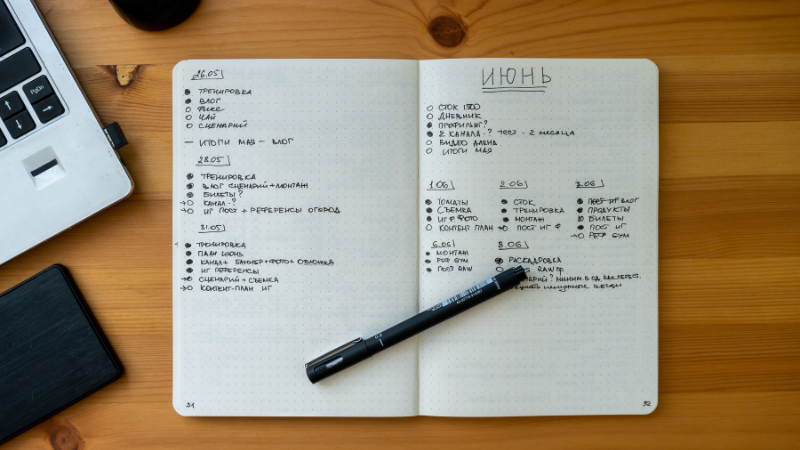 26.05
ТРЕНИРОВКА
ВЛОГ
ФИКС
ЧАЙ
СЦЕНАРИЙ
— ИТОГИ МАЯ — ВЛОГ
28.05
ТРЕНИРОВКА
ВЛОГ СЦЕНАРИЙ+МОНТАЖ
БИЛЕТЫ?
КАНАЛ-?
ИГ ПОСТ + РЕФЕРЕНСЫ ОГОРОД
31.05
ТРЕНИРОВКА
ПЛАН ИЮНЬ
КАНАЛ+ БАННЕР+ФОТО+ ОБЛОЖКА
ИГ РЕФЕРЕНСЫ
СЦЕНАРИЙ+СЪЕМКА
КОНТЕНТ-ПЛАН ИГ
31
ИЮНЬ
СТОК
ДНЕВНИК
ПРОФИЛЬ ИГ?
2 КАНАЛА-? ТЕСТ - 2 МЕСЯЦА
ВИДЕО
ИТОГИ МАЯ
1.06
ТОМАТЫ
СЪЕМКА
ИГ Ф ФОТО
КОНТЕНТ ПЛАН
2.06
СТОК
ТРЕНИРОВКА
МОНТАЖ
ПОСТ ИГ Ф
ПОСТ ИГ ВЛОГ
ПРОДУКТЫ
БИЛЕТЫ
ПОСТ ИГ
РЕФ GYM
6.06
МОНТАЖ
РЕФ GYM
ПОСТ RAW
8.06
РАСКАДРОВКА
RAW
32
PgDn